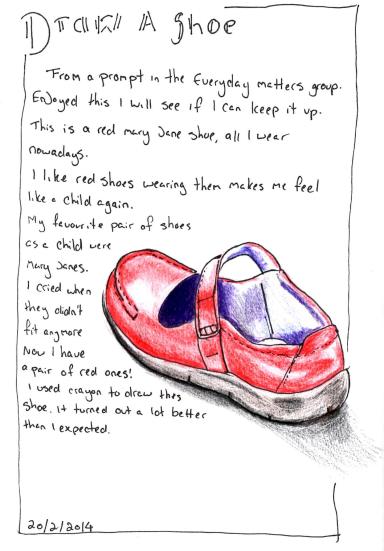 Draw A Shoe
From a prompt in the Everyday matters group.
Enjoyed this I will see if I can keep it up.
This is a red mary Jane shoe, all I wear
nowadays.
I like red shoes wearing them makes me feel
like a child again.
My favourite pair of shoes
as a child were
Mary Janes.
I cried when
they didn't
fit anymore
Now I have
a pair of red ones!
I used crayon to draw this
shoe. It turned out a lot better
than I expected.
20/2/2014